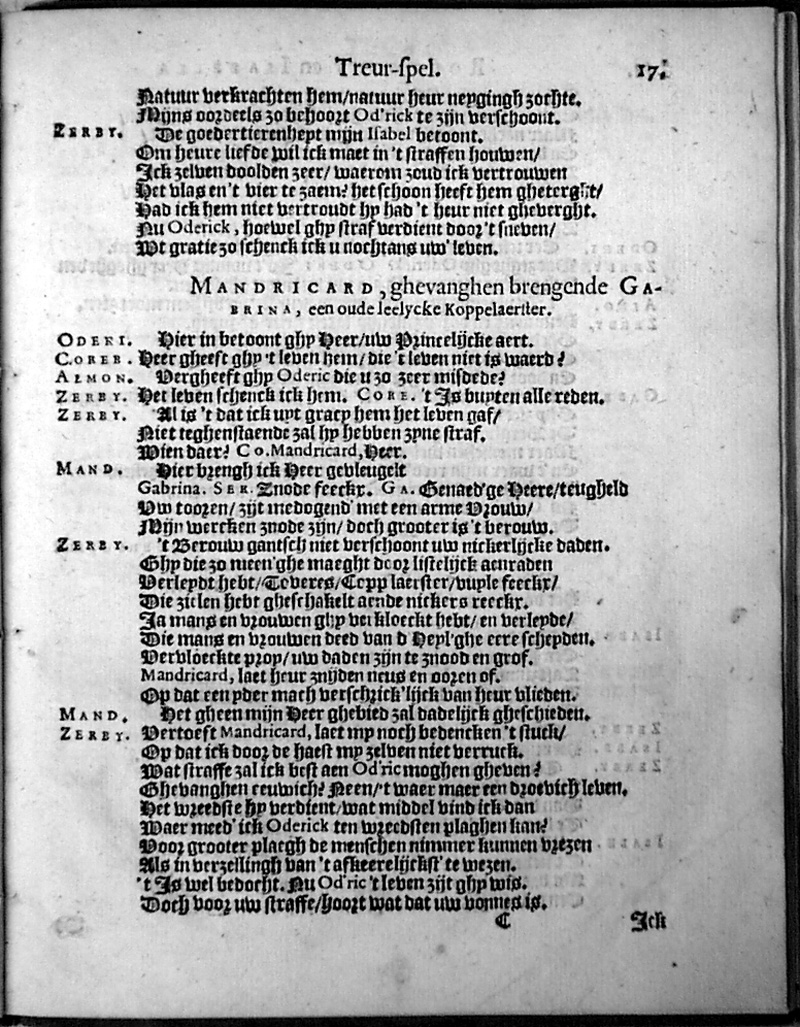 Treur-spel. 17.
Natuur verkrachten hem/natuur heur neygingh zochte.
Mijns oordeels zo behoort Od'rick te zijn verschoont.
ZERBY. De goedertierenheyt mijn Isabel betoont.
Om heure liefde wil ick maet in 't straffen houwen/
Ick zelven doolden zeer/ waerom zoud ick vertrouwen
Het vlas en't vier te zaem? het schoon heeft hem gheterght/
Had ick hem niet vertroudt hy had 't heur niet gheverght.
Nu Oderick, hoewel ghy straf verdient door't sneven/
Wt gratie zo schenck ick u nochtans uw' leven.
MANDRICARD, ghevanghen brengende GA-
BRINA, een oude leelycke Koppelaerster.
ODERI. Hier in betoont ghy Heer/uw Princelijcke aert.
COREB. Heer gheeft ghy 't leven hem/ die 't leven niet is waerd?
ALMON. Vergheeft ghy Oderic die u zo zeer misdede?
ZERBY. Het leven schenck ick hem. CORE. 't Is buyten alle reden.
ZERBY. Al is 't dat ick uyt gracy hem het leven gaf/
Niet teghenstaende zal hy hebben zyne straf.
Wien daer? Co. Mandricard, Heer.
MAND. Hier brengh ick Heer gevleugelt
Gabrina. SER. Znode feeckx. GA. Genaed'ge Heere/teugheld
Uw tooren/ zijt medogend' met een arme Vrouw/
Mijn wercken znode zijn/ doch grooter is 't berouw.
ZERBY. 't Berouw gantsch niet verschoont uw nickerlijcke daden.
Ghy die zo meen'ghe maeght door listelijck aenraden
Verleydt hebt/Toveres/Copp laerster/vuyle feeckx/
Die zielen hebt gheschakelt aende nickers reeckx.
Ja mans en vrouwen ghy verkloeckt hebt/ en verleyde/
Die mans en vrouwen deed van d'Heyl'ghe eere scheyden.
Vervloeckte prop/ uw daden zijn te znood en grof.
Mandricard, laet heur znijden neus en ooren of.
Op dat een yder mach verschrick'lijck van heur vlieden.
MAND. Het gheen mijn Heer ghebied zal dadelijck gheschieden.
ZERBY. Vertoeft Mandricard, laet my noch bedencken 't stuck/
Op dat ick door de haest my zelven niet verruck.
Wat straffe zal ick best aen Od'ric moghen gheven?
Ghevanghen eeuwich? Neen/'t waer maer een droevich leven.
Het wreedste hy verdient/wat middel vind ick dan
Waer meed' ick Oderick ten wreedsten plaghen kan?
Voor grooter plaegh de menschen nimmer kunnen vrezen
Als in verzellingh van 't afkeerelijckst' te wezen.
't Is wel bedocht. Nu Od'ric 't leven zijt ghy wis.
Doch voor uw straffe/hoort wat dat uw vonnes is.
C Ick